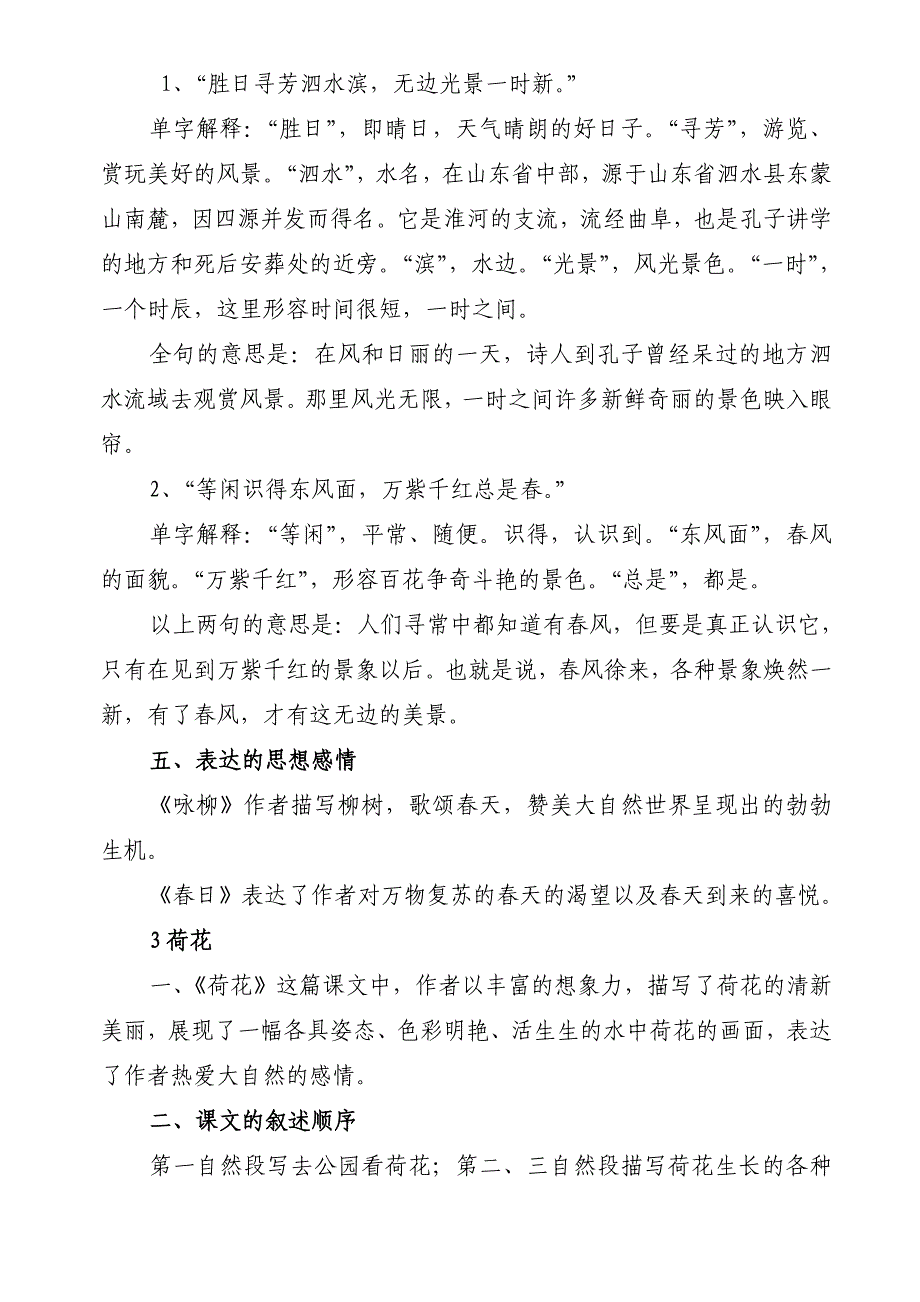 1、“胜日寻芳泗水滨，无边光景一时新。”
单字解释：“胜日”，即晴日，天气晴朗的好日子。“寻芳”，游览、
赏玩美好的风景。“泗水”，水名，在山东省中部，源于山东省泗水县东蒙
山南麓，因四源并发而得名。它是淮河的支流，流经曲阜，也是孔子讲学
的地方和死后安葬处的近旁。“滨”，水边。“光景”，风光景色。“一时”，
一个时辰，这里形容时间很短，一时之间。
全句的意思是：在风和日丽的一天，诗人到孔子曾经呆过的地方泗
水流域去观赏风景。那里风光无限，一时之间许多新鲜奇丽的景色映入眼
帘。
2、“等闲识得东风面，万紫千红总是春。”
单字解释：“等闲”，平常、随便。识得，认识到。“东风面”，春风
的面貌。“万紫千红”，形容百花争奇斗艳的景色。“总是”，都是。
以上两句的意思是：人们寻常中都知道有春风，但要是真正认识它，
只有在见到万紫千红的景象以后。也就是说，春风徐来，各种景象焕然一
新，有了春风，才有这无边的美景。
五、表达的思想感情
《咏柳》作者描写柳树，歌颂春天，赞美大自然世界呈现出的勃勃
生机。
《春日》表达了作者对万物复苏的春天的渴望以及春天到来的喜悦。
3 荷花
一、《荷花》这篇课文中，作者以丰富的想象力，描写了荷花的清新
美丽，展现了一幅各具姿态、色彩明艳、活生生的水中荷花的画面，表达
了作者热爱大自然的感情。
二、课文的叙述顺序
第一自然段写去公园看荷花；第二、三自然段描写荷花生长的各种